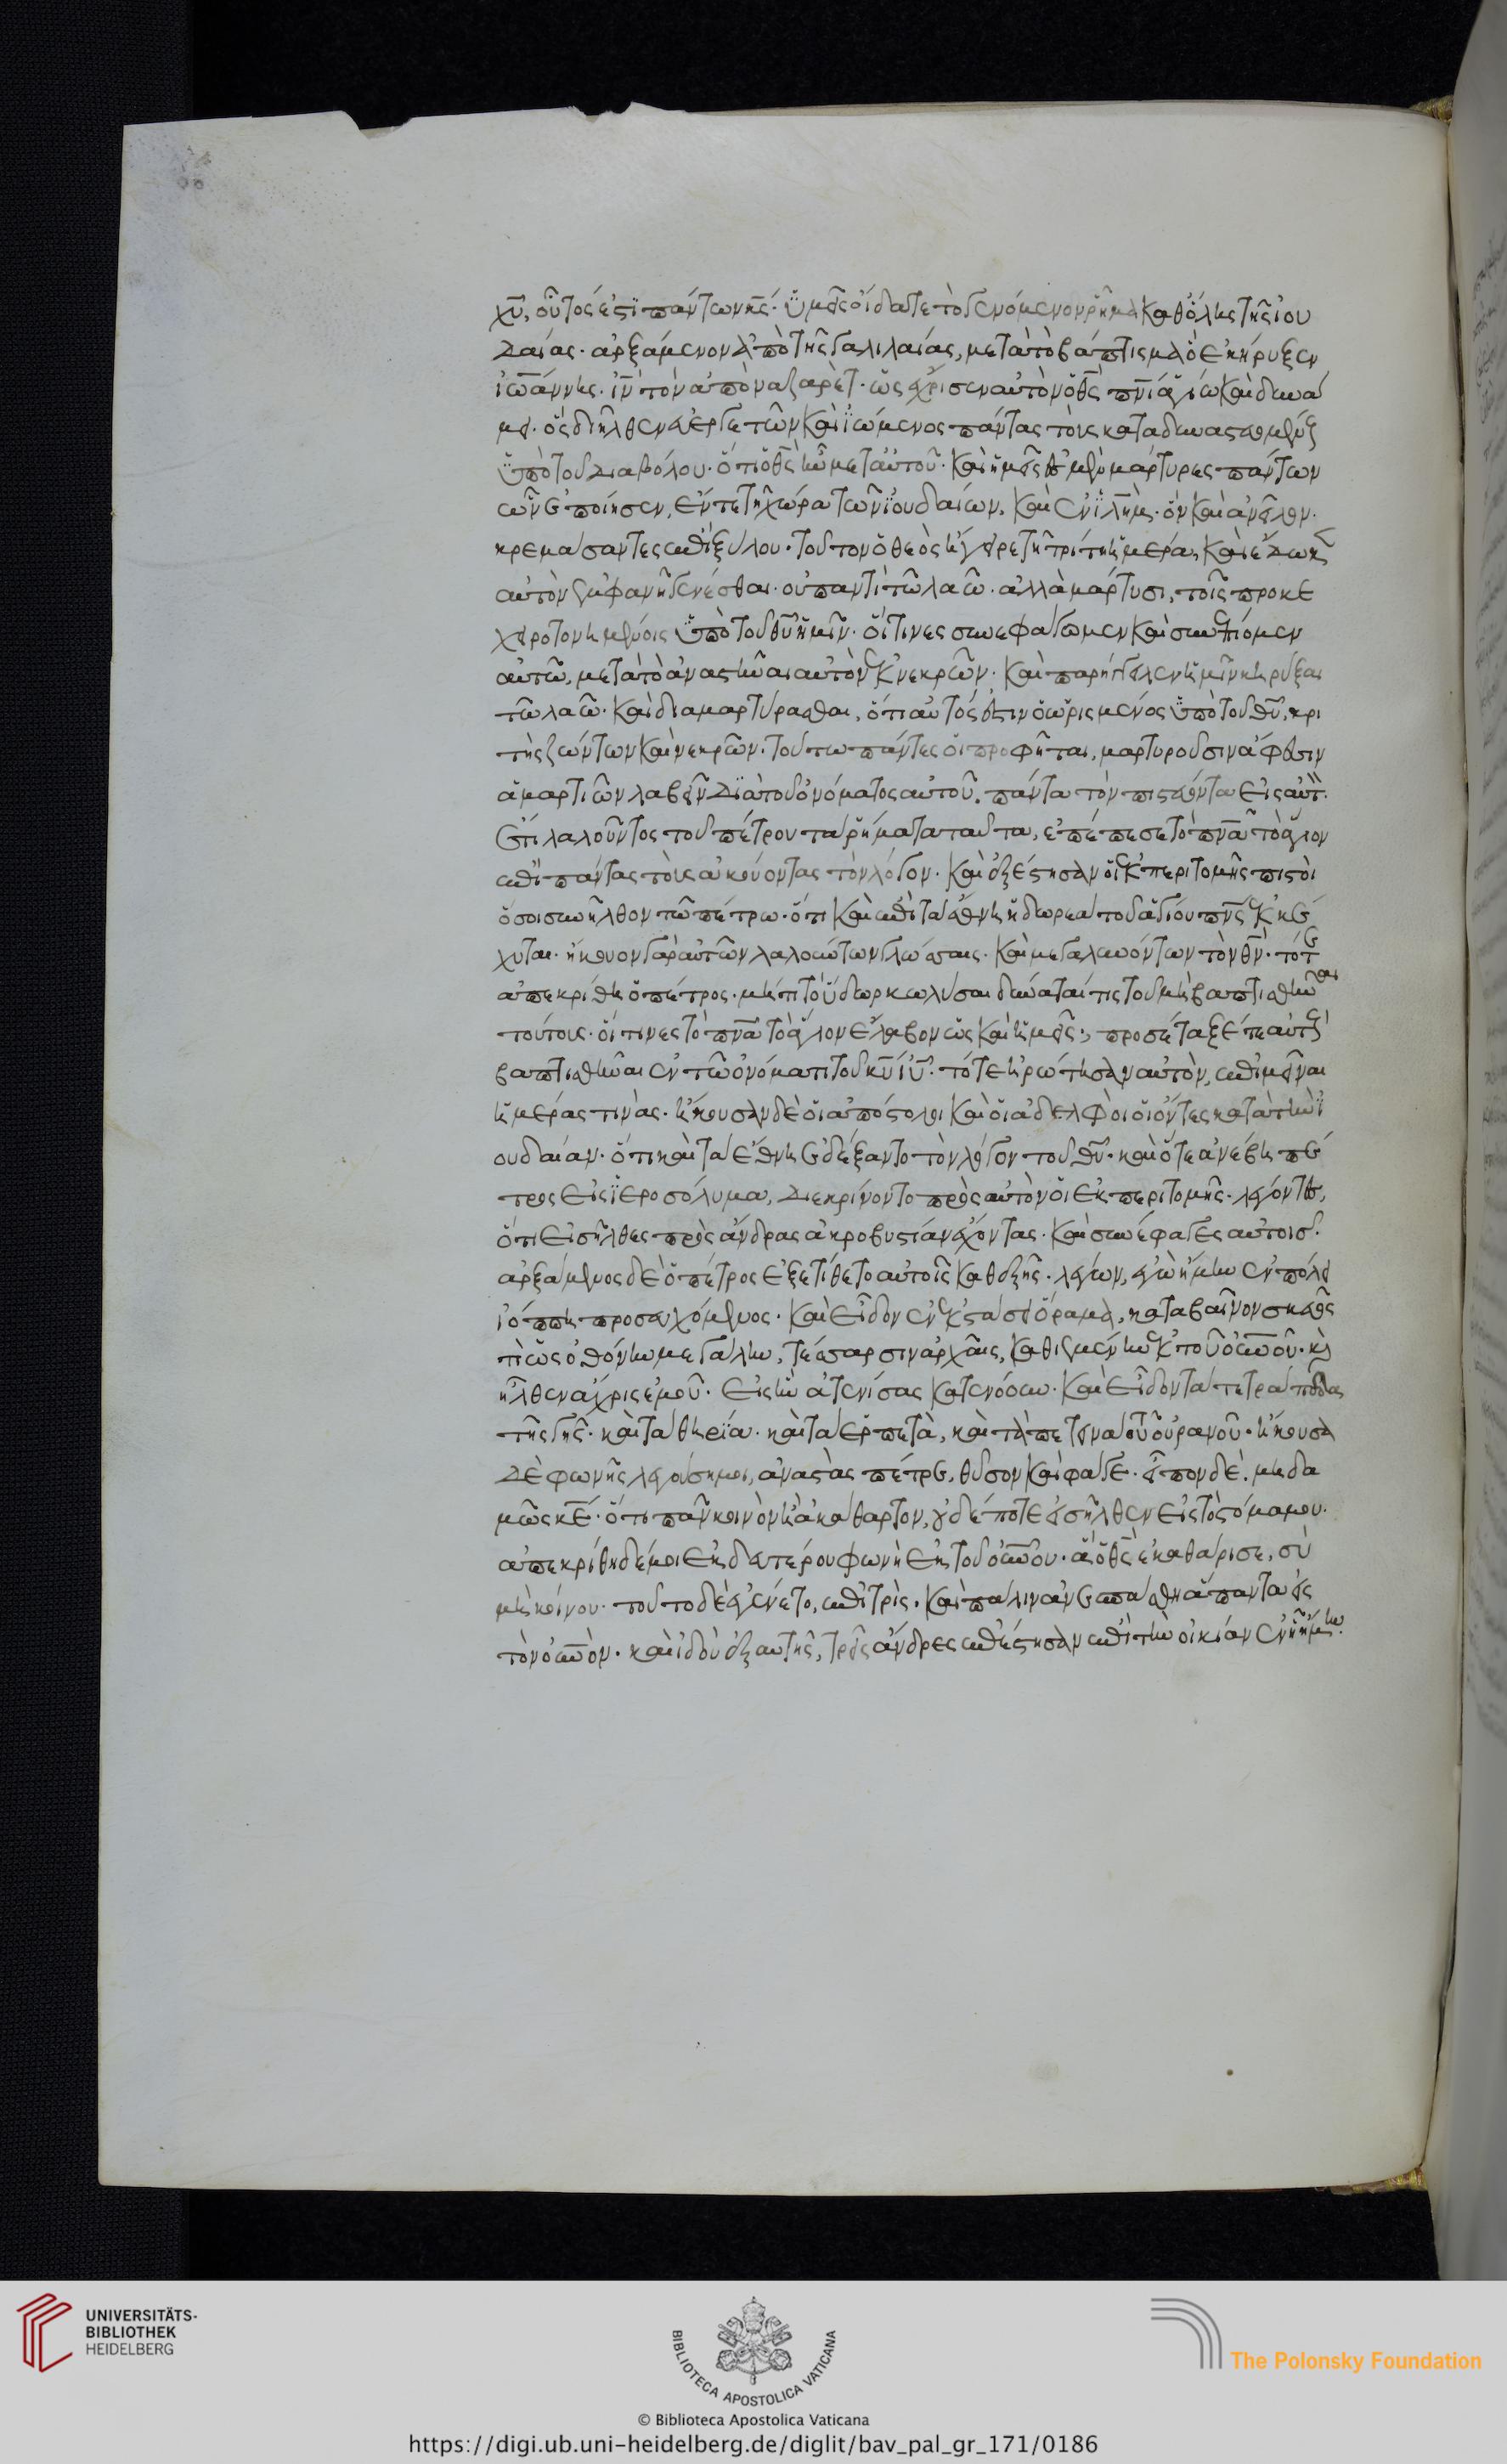 χῦ, οὗτός ἐστὶ πάντων κ̅ς̅. ὑμεῖς οἴδατε τὸ γενόμενον ῥῆμα καθόλης τῆς ἰου
δαίας. ἀρξάμενον ἀπὸ τῆς γαλιλαίας, μετὰ τὸ βάπτισμα ὃ ἐκήρυξεν
ἰωάννης. ἰ̅ν̅ τὸν ἀπὸ ναζαρέτ. ὡς ἔχρισεν αὐτὸν ὁ θ̅ς̅ π̅ν̅ι ἁγίω καὶ δυνά
μει. ὃς διῆλθεν εὐεργετῶν καὶ ἰώμενος πάντας τοὺς καταδυναστευομένους
ὑπὸ τοῦ διαβόλου. ὅτι ὁ θ̅ς̅ ἦν μετ' αὐτοῦ. καὶ ἡμεῖς ἐσμὲν μάρτυρες πάντων
ὧν ἐποίησεν, ἔν τε τῆ χώρα τῶν ἰουδαίων, καὶ ἐν ἰ̅λ̅ή̅μ̅. ὃν καὶ ἀνεῖλον.
κρεμάσαντες ἐπὶ ξύλου. τοῦτον ὁ θεὸς ἤγειρε τῆ τρίτη ἡμέρα, καὶ ἔδωκεν
αὐτὸν ἐμφανῆ γενέσθαι. οὐ παντὶ τῶ λαῶ. ἀλλὰ μάρτυσι, τοῖς προκε
χειροτονημένοις ὑπὸ τοῦ θ̅υ̅ ἡμῖν. οἵτινες συνεφάγωμεν καὶ συνεπίομεν
αὐτῶ, μετὰ τὸ ἀναστῆναι αὐτὸν ἐκ νεκρῶν. καὶ παρήγγειλεν ἡμῖν κηρύξαι
τῶ λαῶ. καὶ διαμαρτύρασθαι, ὅτι αὐτός ἐστιν ὁ ὡρισμένος ὑπὸ τοῦ θ̅υ̅, κρι
τὴς ζώντων καὶ νεκρῶν. τούτω πάντες οἱ προφῆται, μαρτυροῦσιν ἄφεσιν
ἁμαρτιῶν λαβεῖν διὰ τοῦ ὀνόματος αὐτοῦ. πάντα τὸν πιστεύοντα εἰς αὐτ̀.
ἔτι λαλοῦντος τοῦ πέτρου τὰ ῥήματα ταῦτα, ἐπέπεσε τὸ π̅ν̅α̅ τὸ ἅγιον
ἐπὶ πάντας τοὺς ἀκούοντας τὸν λόγον. καὶ ἐξέστησαν οἱ ἐκ περιτομῆς πιστοὶ
ὅσοι συνῆλθον τῶ πέτρω. ὅτι καὶ ἐπὶ τὰ ἔθνη ἡ δωρεὰ τοῦ ἁγίου π̅ν̅ς̅ ἐκκέ
χυται. ἤκουον γὰρ αὐτῶν λαλούντων γλώσσαις. καὶ μεγαλυνόντων τὸν θ̅ν̅. τότε
ἀπεκρίθη ὁ πέτρος. μήτι τὸ ὕδωρ κωλύσαι δύναταί τις τοῦ μὴ βαπτισθῆναι
τούτους. οἵτινες τὸ π̅ν̅α̅ τὸ ἅγιον ἔλαβον ὡς καὶ ἡμεῖς., προσέταξέ τε αὐτοὺς
βαπτισθῆναι ἐν τῶ ὀνόματι τοῦ κ̅υ̅ ἰ̅υ̅. τότε ἠρώτησαν αὐτὸν, ἐπιμεῖναι
ἡμέρας τινὰς. ἤκουσαν δὲ οἱ ἀπόστολοι καὶ οἱ ἀδελφοὶ οἱ ὄντες κατὰ τὴν ἰ
ουδαίαν. ὅτι καὶ τὰ ἔθνη ἐδέξαντο τὸν λόγον τοῦ θ̅υ̅. καὶ ὅτε ἀνέβη πέ
τρος εἰς ἱεροσόλυμα, διεκρίνοντο πρὸς αὐτὸν οἱ ἐκ περιτομῆς. λέγοντες,
ὅτι εἰσῆλθες πρὸς ἄνδρας ἀκροβυστίαν ἔχοντας. καὶ συνέφαγες αὐτοῖς.
ἀρξάμενος δὲ ὁ πέτρος ἐξετίθετο αὐτοῖς καθεξῆς. λέγων, ἐγὼ ἤμην ἐν πόλει
ἰόππη προσευχόμενος. καὶ εἶδον ἐν ἐκστάσει ὅραμα, καταβαῖνον σκεῦός
τι ὡς ὀθόνην μεγάλην, τέσσαρσιν ἀρχαῖς, καθιεμένην ἐκ τοῦ ο̅υ̅ν̅ο̅υ̅. κ̀
ἦλθεν ἄχρις ἐμοῦ. εἰς ἣν ἀτενίσας κατενόουν. καὶ εἶδον τὰ τετράποδα
τῆς γῆς. καὶ τὰ θηρία. καὶ τὰ ἑρπετὰ, καὶ τὰ πετεινὰ τοῦ οὐρανοῦ. ἤκουσα
δὲ φωνῆς λεγούσης μοι, ἀναστὰς πέτρε, θύσον καὶ φάγε. εἶπον δὲ. μηδα
μῶς κ̅ε̅. ὅτι πᾶν κοινὸν ἢ ἀκάθαρτον, οὐδέποτε εἰσῆλθεν εἰς τὸ στόμα μου.
ἀπεκρίθη δέ μοι ἐκ δευτέρου φωνὴ ἐκ τοῦ ο̅υ̅ν̅ο̅υ̅. ἃ ὁ θ̅ς̅ ἐκαθάρισε, σὺ
μὴ κοίνου. τοῦτο δὲ ἐγένετο, ἐπὶ τρὶς. καὶ πάλιν ἀνεσπάσθη ἅπαντα εἰς
τὸν ο̅υ̅ν̅ὸν. καὶ ἰδοὺ ἐξαυτῆς, τρεῖς ἄνδρες ἐπέστησαν ἐπὶ τὴν οἰκίαν ἐν ἧ ἤμην.
UNIVERSITÄTS-
BIBLIOTHEK
HEIDELBERG
BIBLIOTECA APOSTOLICA VATICANA
The Polonsky Foundation
© Biblioteca Apostolica Vaticana
https://digi.ub.uni-heidelberg.de/diglit/bav_pal_gr_171/0186